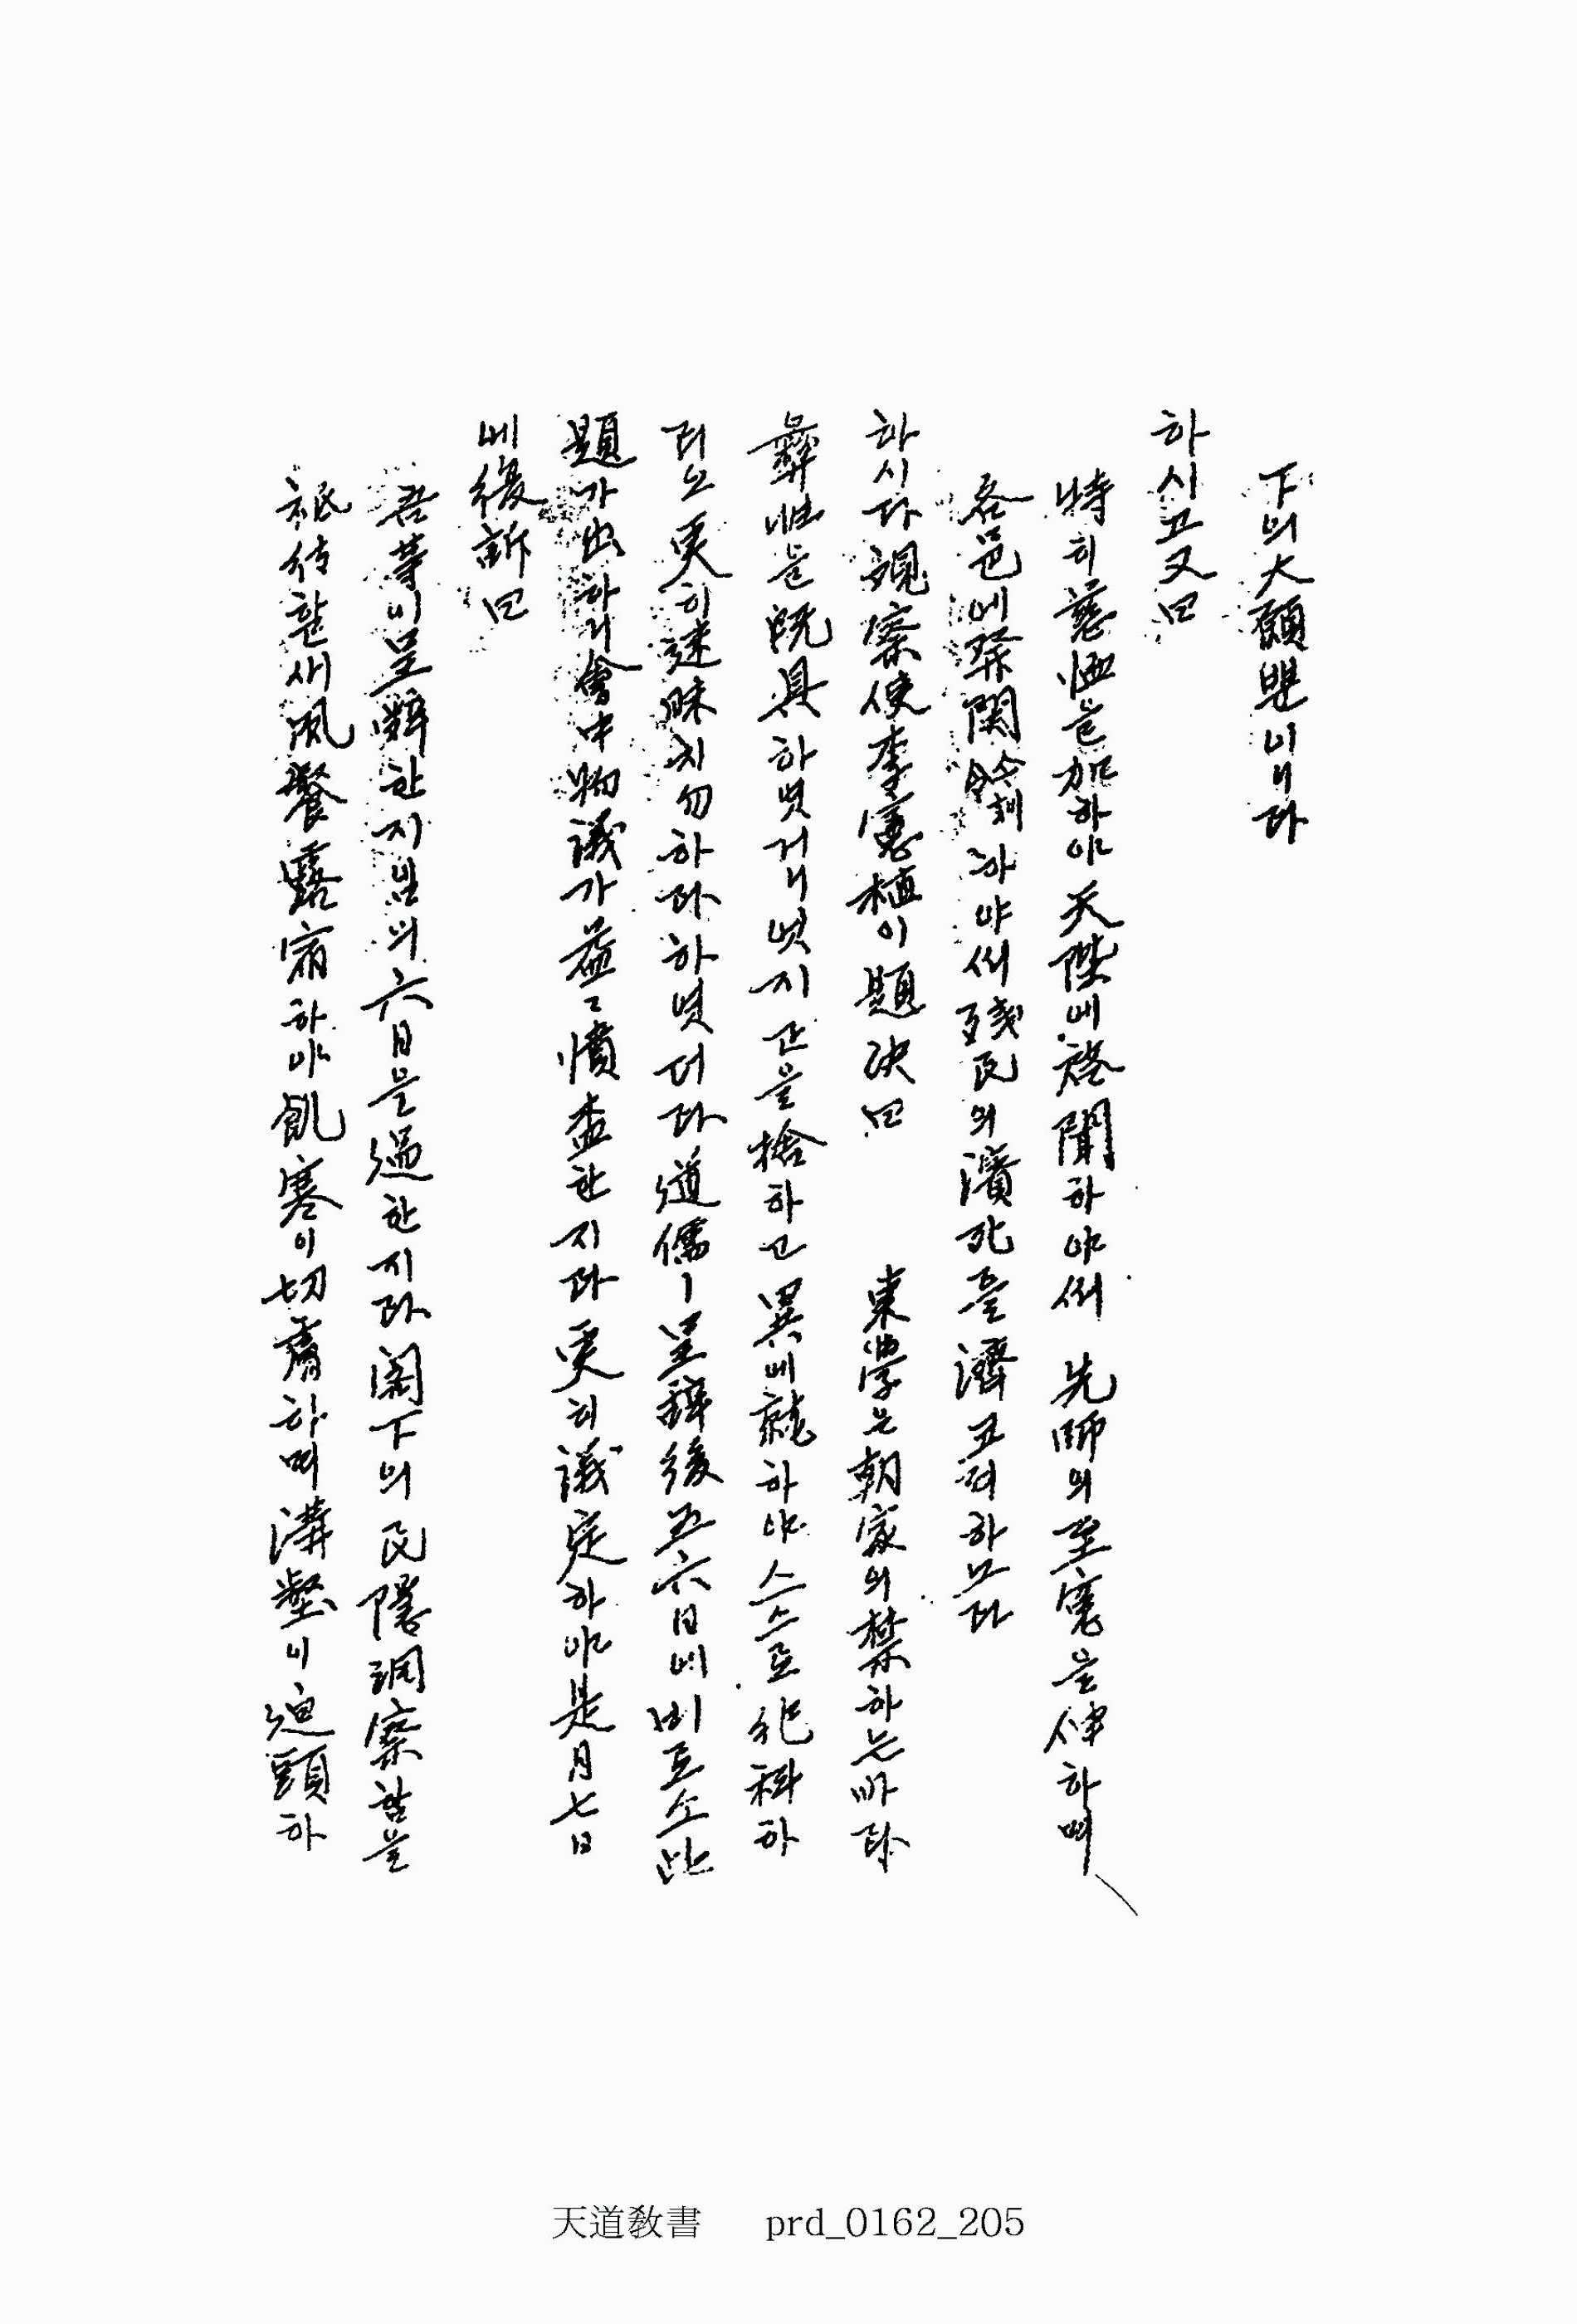 下의大願뿐이니다
하시고又曰
特히慈恤을加하야天陛에啓聞하야써 先師의至寃을伸하며
各邑에發關飭하야써殘民의濱死를濟코져하노라
하시다觀察使李憲植이題決曰 東學은朝家의禁하는바라
彛性을旣具하엿거니엇지正을捨하고異에就하야스스로犯科하
리오更히迷昧치勿하라하엿더라道儒ㅣ呈辭後五六日에비로소此
題가出하니會中物議가益々憤盃한지라更히議定하야是月七日
에復訴曰
吾等이呈辭한지임의六日을過한지라閤下의民隱洞察함을
祗俟할새風餐露宿하야飢寒이切膚하며溝壑이迫頭하
天道敎書 prd_0162_205